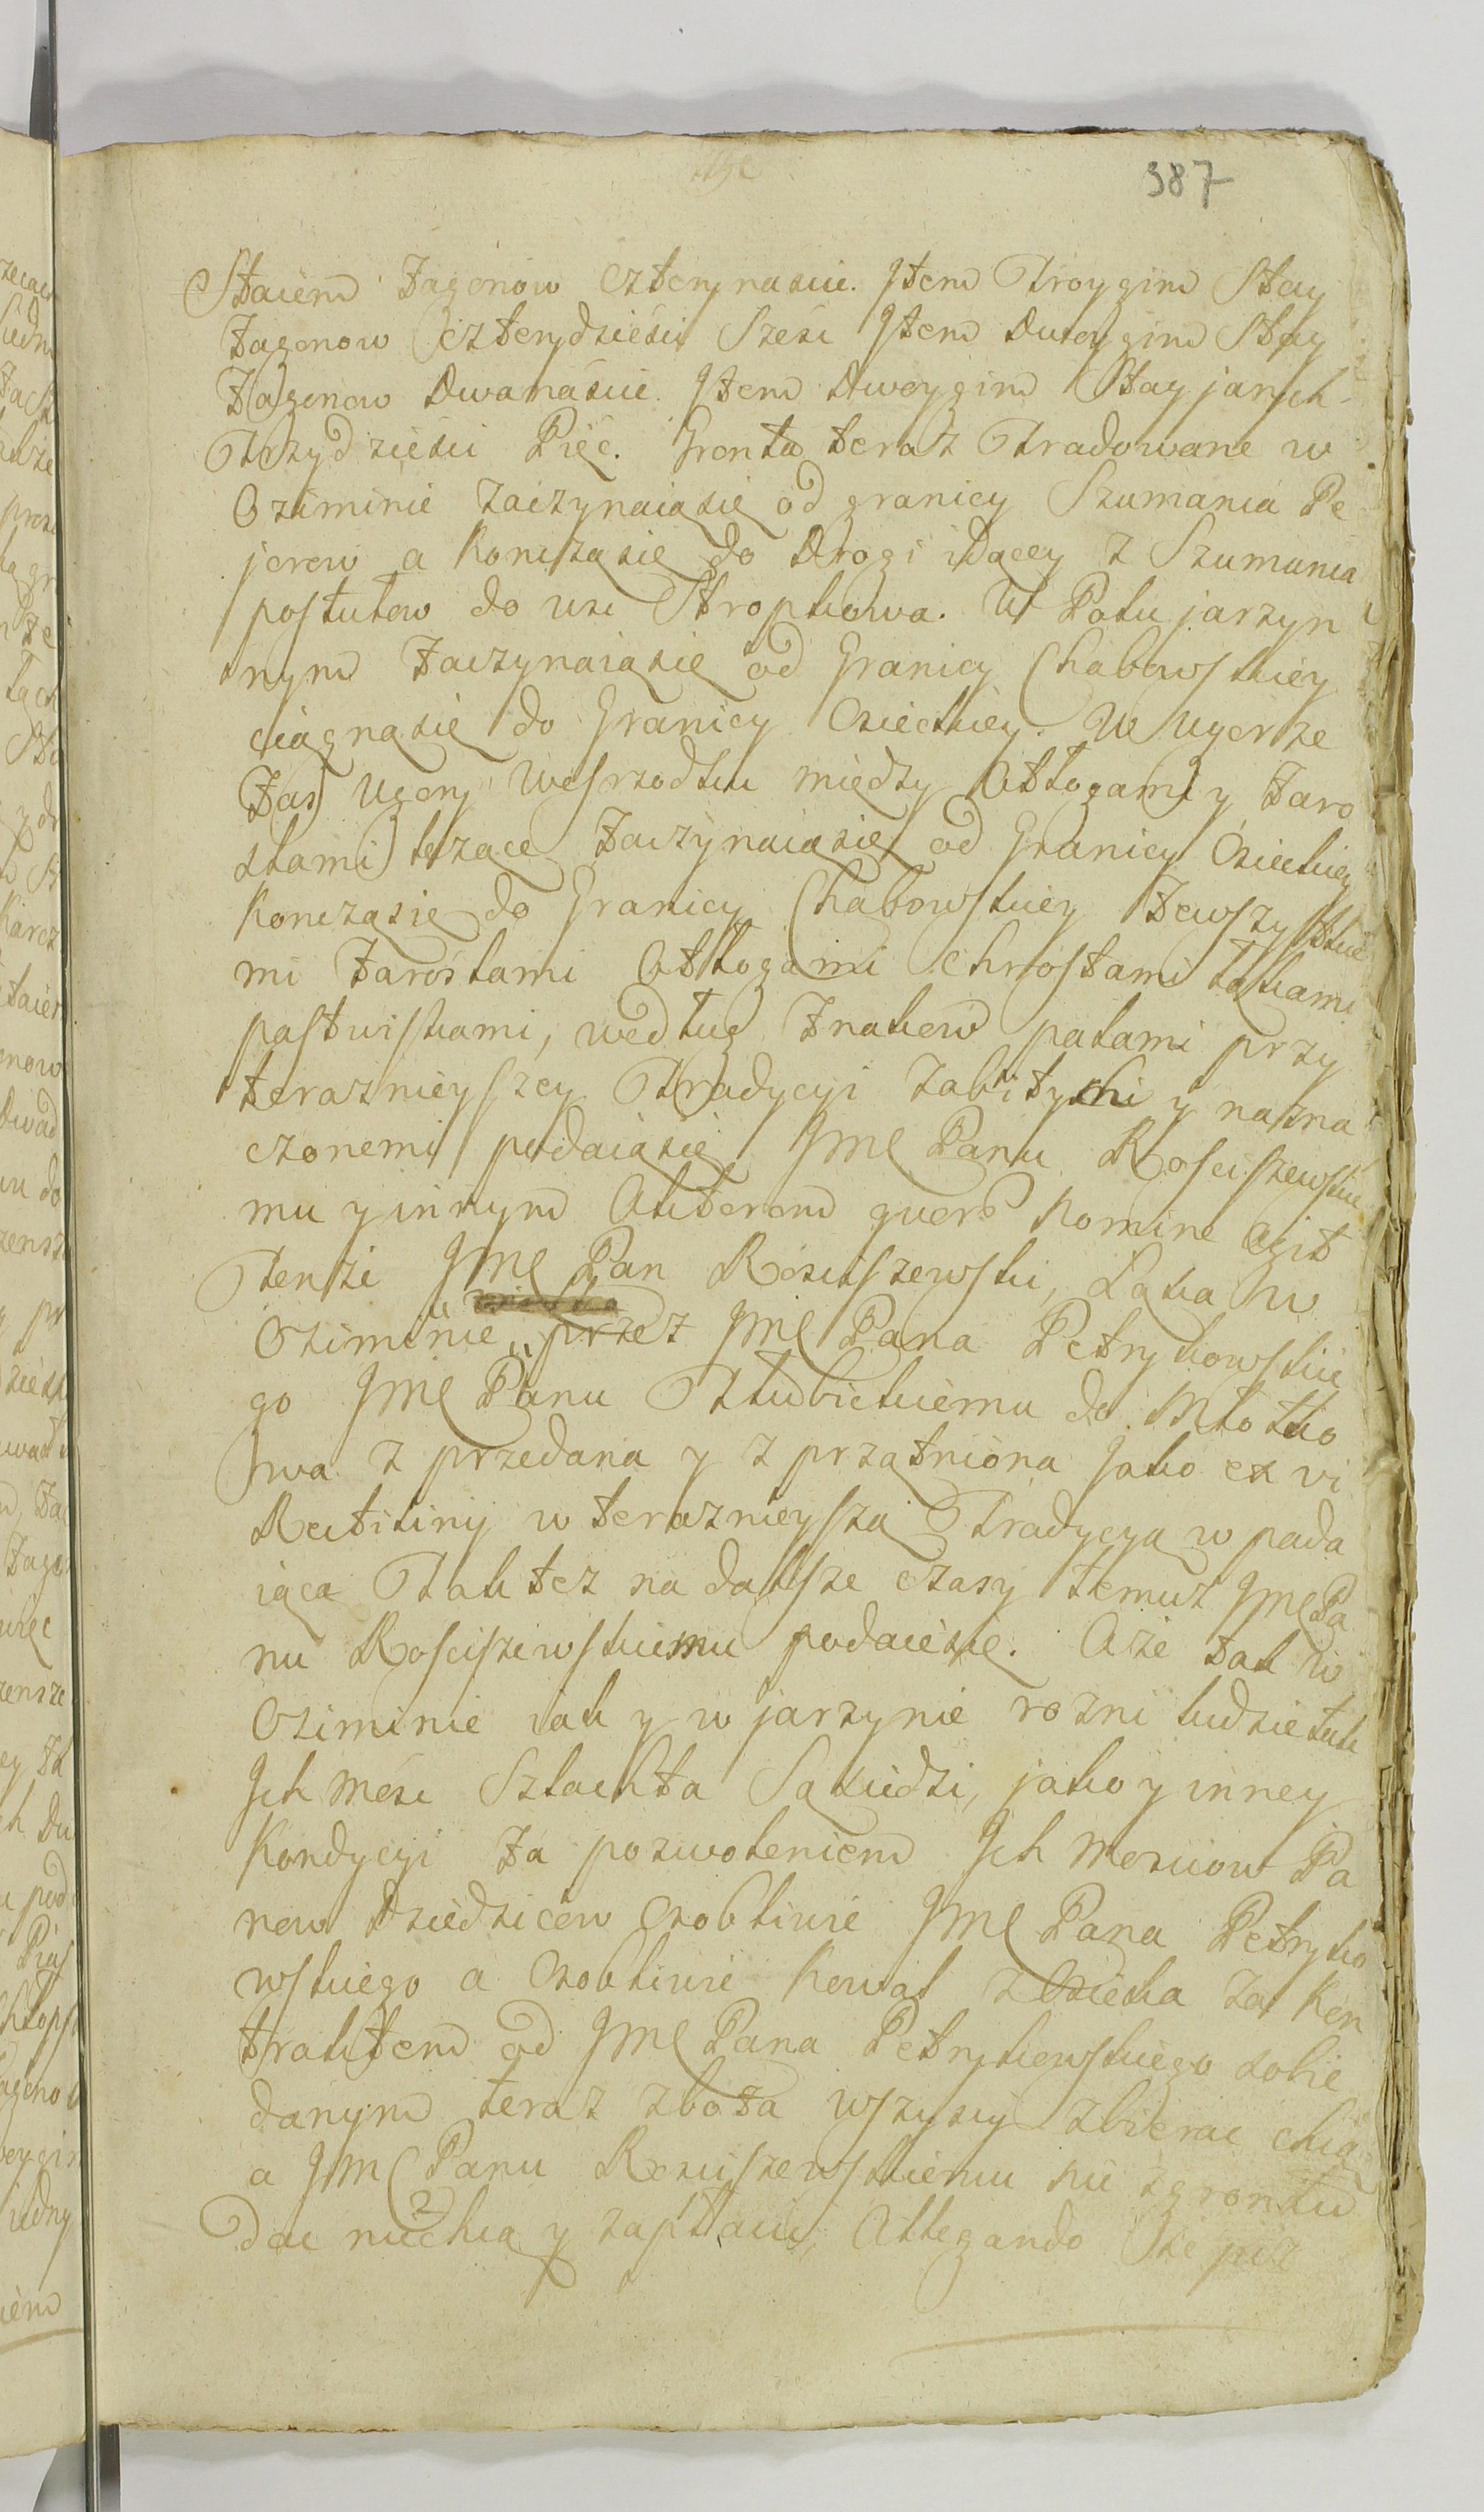 387
Staiem Zagonow czterynascie. Item Troygim Stay
Zagonow czterydziesci Szesc Item Dwoygim Stay
Zagonow Dwanascie. Item Dwoygim Stay jarych
Trzydziesci Pięć. Gronta teraz Tradowane w
Oziminie zaczynaiąsię od granicy Szumania Pe
jorow a Konczasię do Drogi idącey z Szumania
postułow do wsi Stropkowa. W Polu jarzyn
nym Zaczynaiąsię od Granicy Chabowskiey
ciągnąsię do Granicy Osieckiey. W Ugorze
Zas Ugory wesrzodku między Odłogami y Zaro
slami lezące Zaczynaiąsię od Granicy Osieckiey
Konczasię do Granicy Chabowskiey Zewszystkie
mi Zaroslami Odłogami chrostami łąkami
pastwiskami, według Znakow palami przy
teraznieyszey Tradycyi zabitymi y nazna
czonemi podaiąsię Jmć Panu Rosciszewskie
mu y innym Aktorom quor Nomine Agit
Tenże Jmć Pan Rosciszewski, Łąka w
Oziminie przez Jmć Pana Petrykowskie
go Jmć Panu Tłubickiemu do Młotko
wa z przedana y z przątniona Jako ex vi
Reitisiny w teraznieyszą Tradycyą wpada
iąca Tak tez na dalsze czasy temuż Jmć Pa
nu Rosciszewskiemu podaiesię. Aże tak w
Oziminie iak y w jarzynie rozni ludzie tak
Ich Mość Szlachta Sąsiedzi, jako y inney
Kondycyi za pozwoleniem Ich Mosciow Pa
now Dziedzicow Osobliwie Jmć Pana Petryko
wskiego a Osobliwie Kowal z Osieka za Kon
traktem od Jmć Pana Petrykowskiego sobie
danym teraz zboża wszyscy zbierac chcą
a Jmć Panu Rosciszewskiemu nic zgrontu
Dac niechcą y zapłacic, Allegando Ze juz